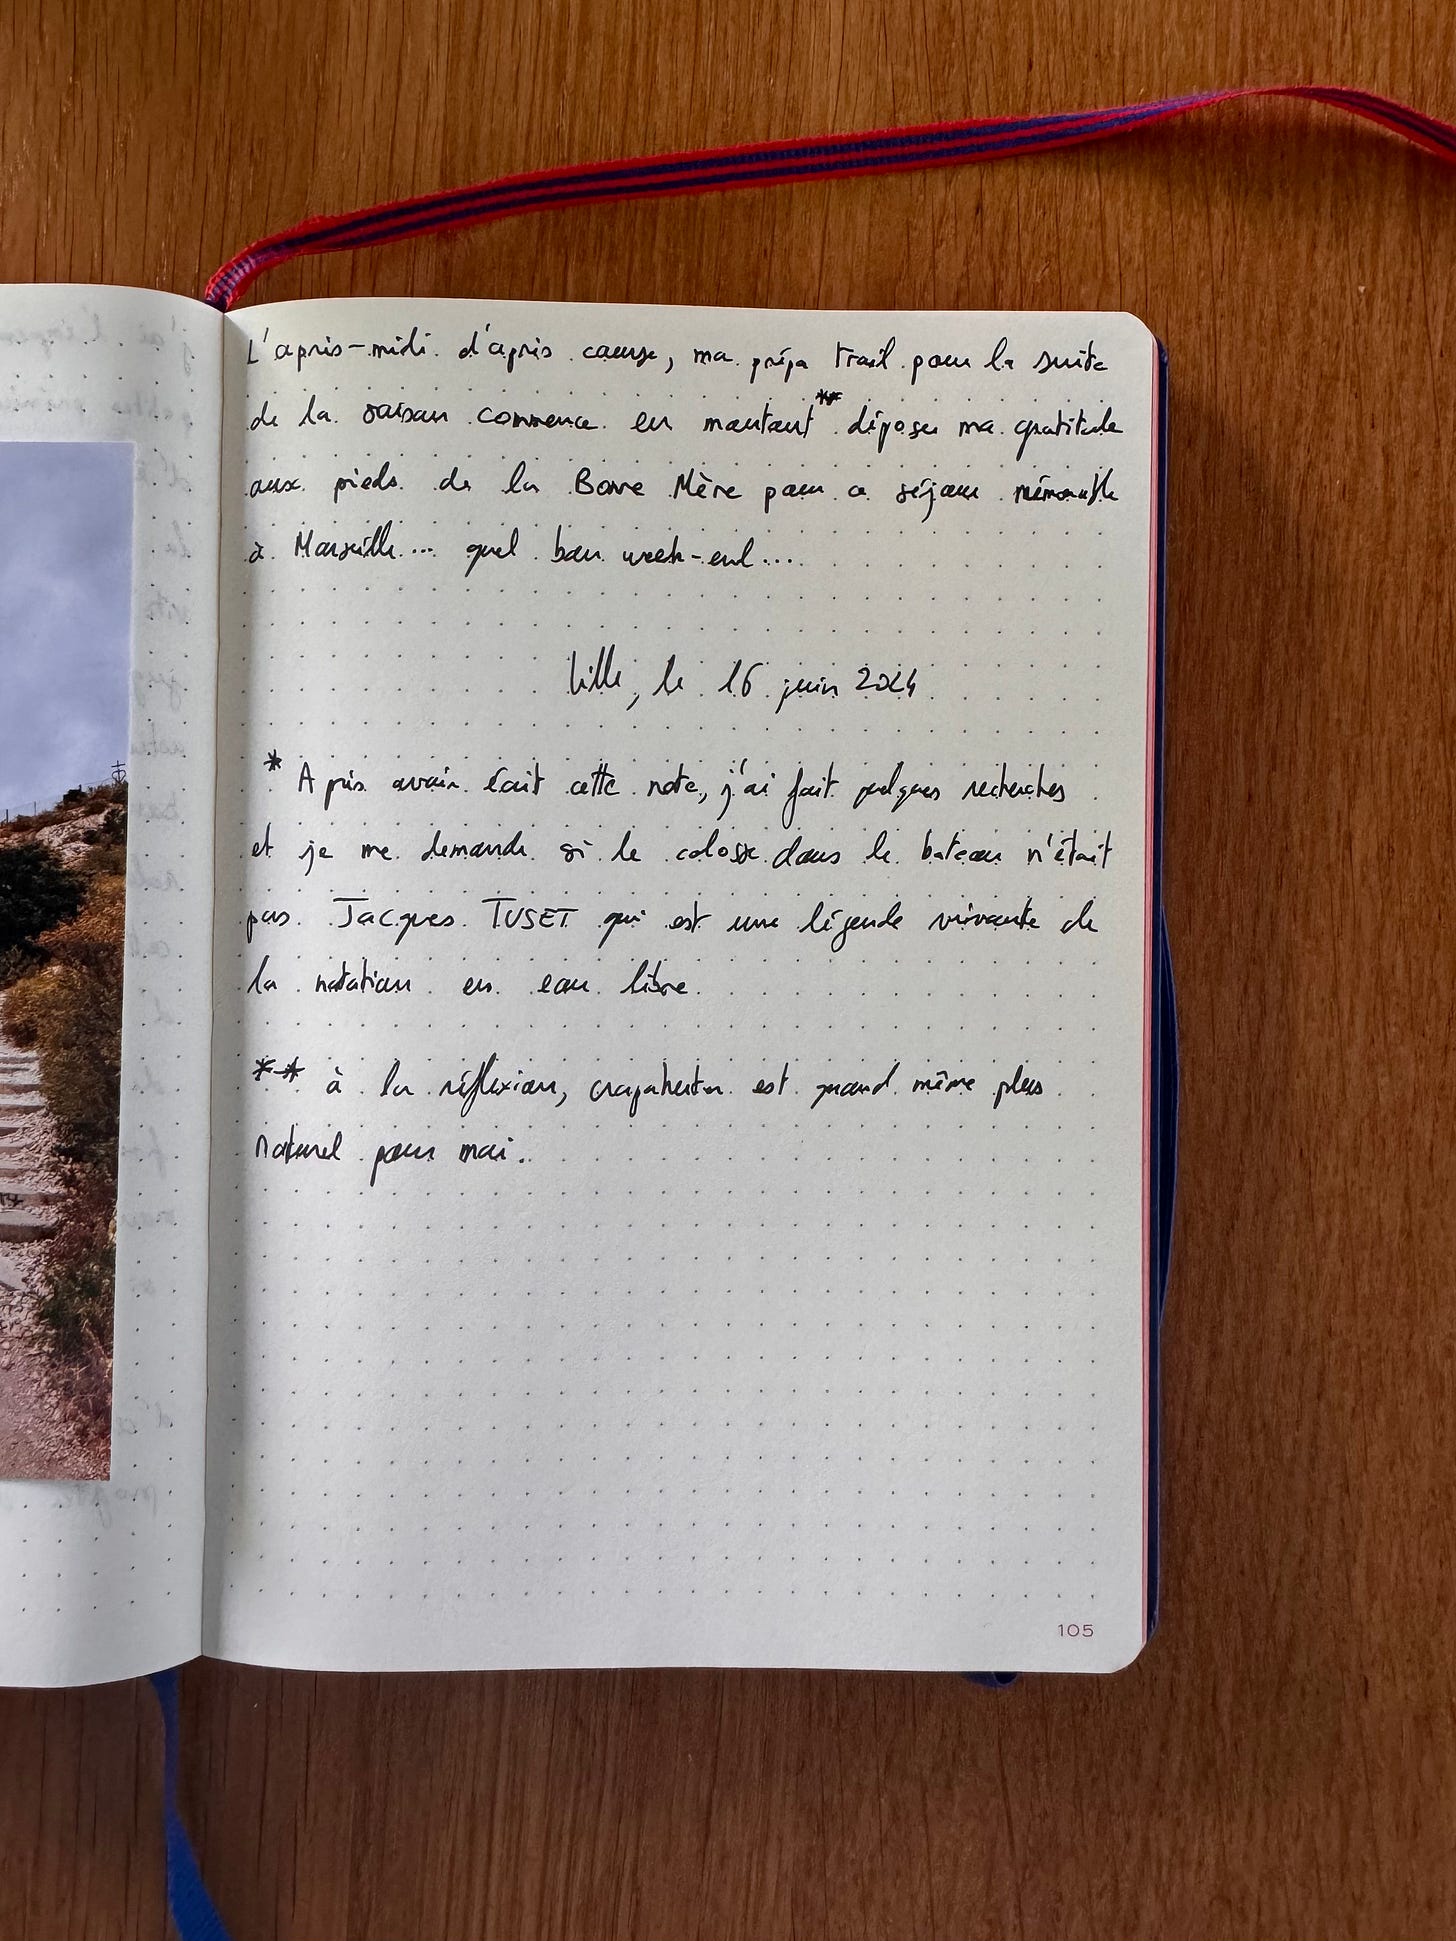 L'après-midi d'après course, ma prépa trail pour la suite
de la saison commence en montant** déposer ma gratitude
aux pieds de la Bonne Mère pour ce séjour mémorable
à Marseille... quel bon week-end...
Lille, le 16 juin 2024
* Après avoir écrit cette note, j'ai fait quelques recherches
et je me demande si le colosse dans le bateau n'était
pas Jacques TUSET qui est une légende vivante de
la natation en eau libre.
** à la réflexion, crapahuter est quand même plus
naturel pour moi.
105